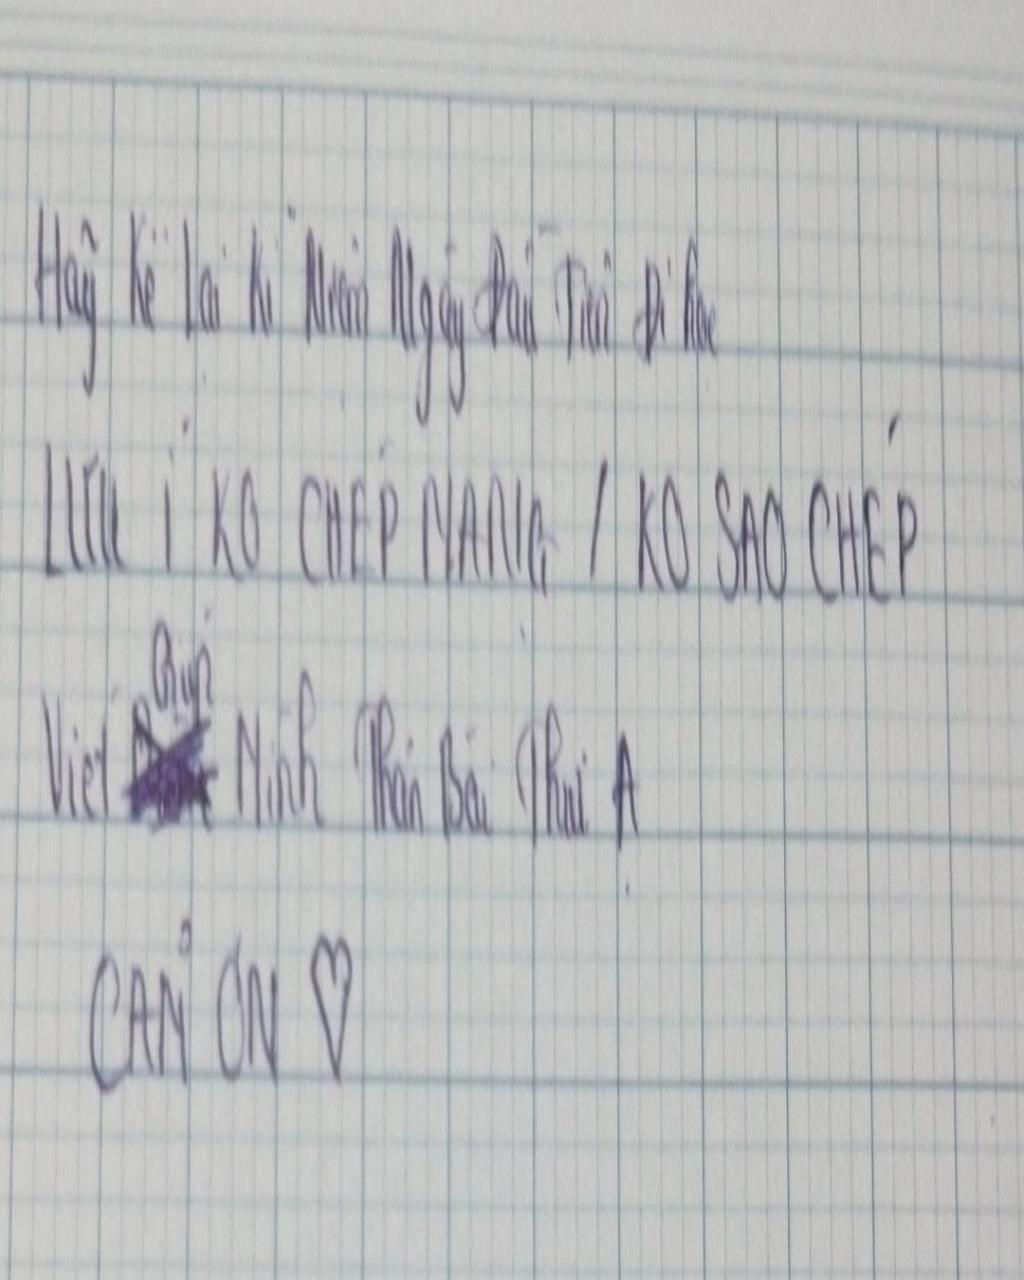 Hãy kể lại kỉ Niệm Ngày Đầu Tiên Đi học
LƯU Í KO CHÉP MẠNG / KO SAO CHÉP
Viết Giúp Mình Phần Bài Phụi Ạ
CẢM ƠN ♡